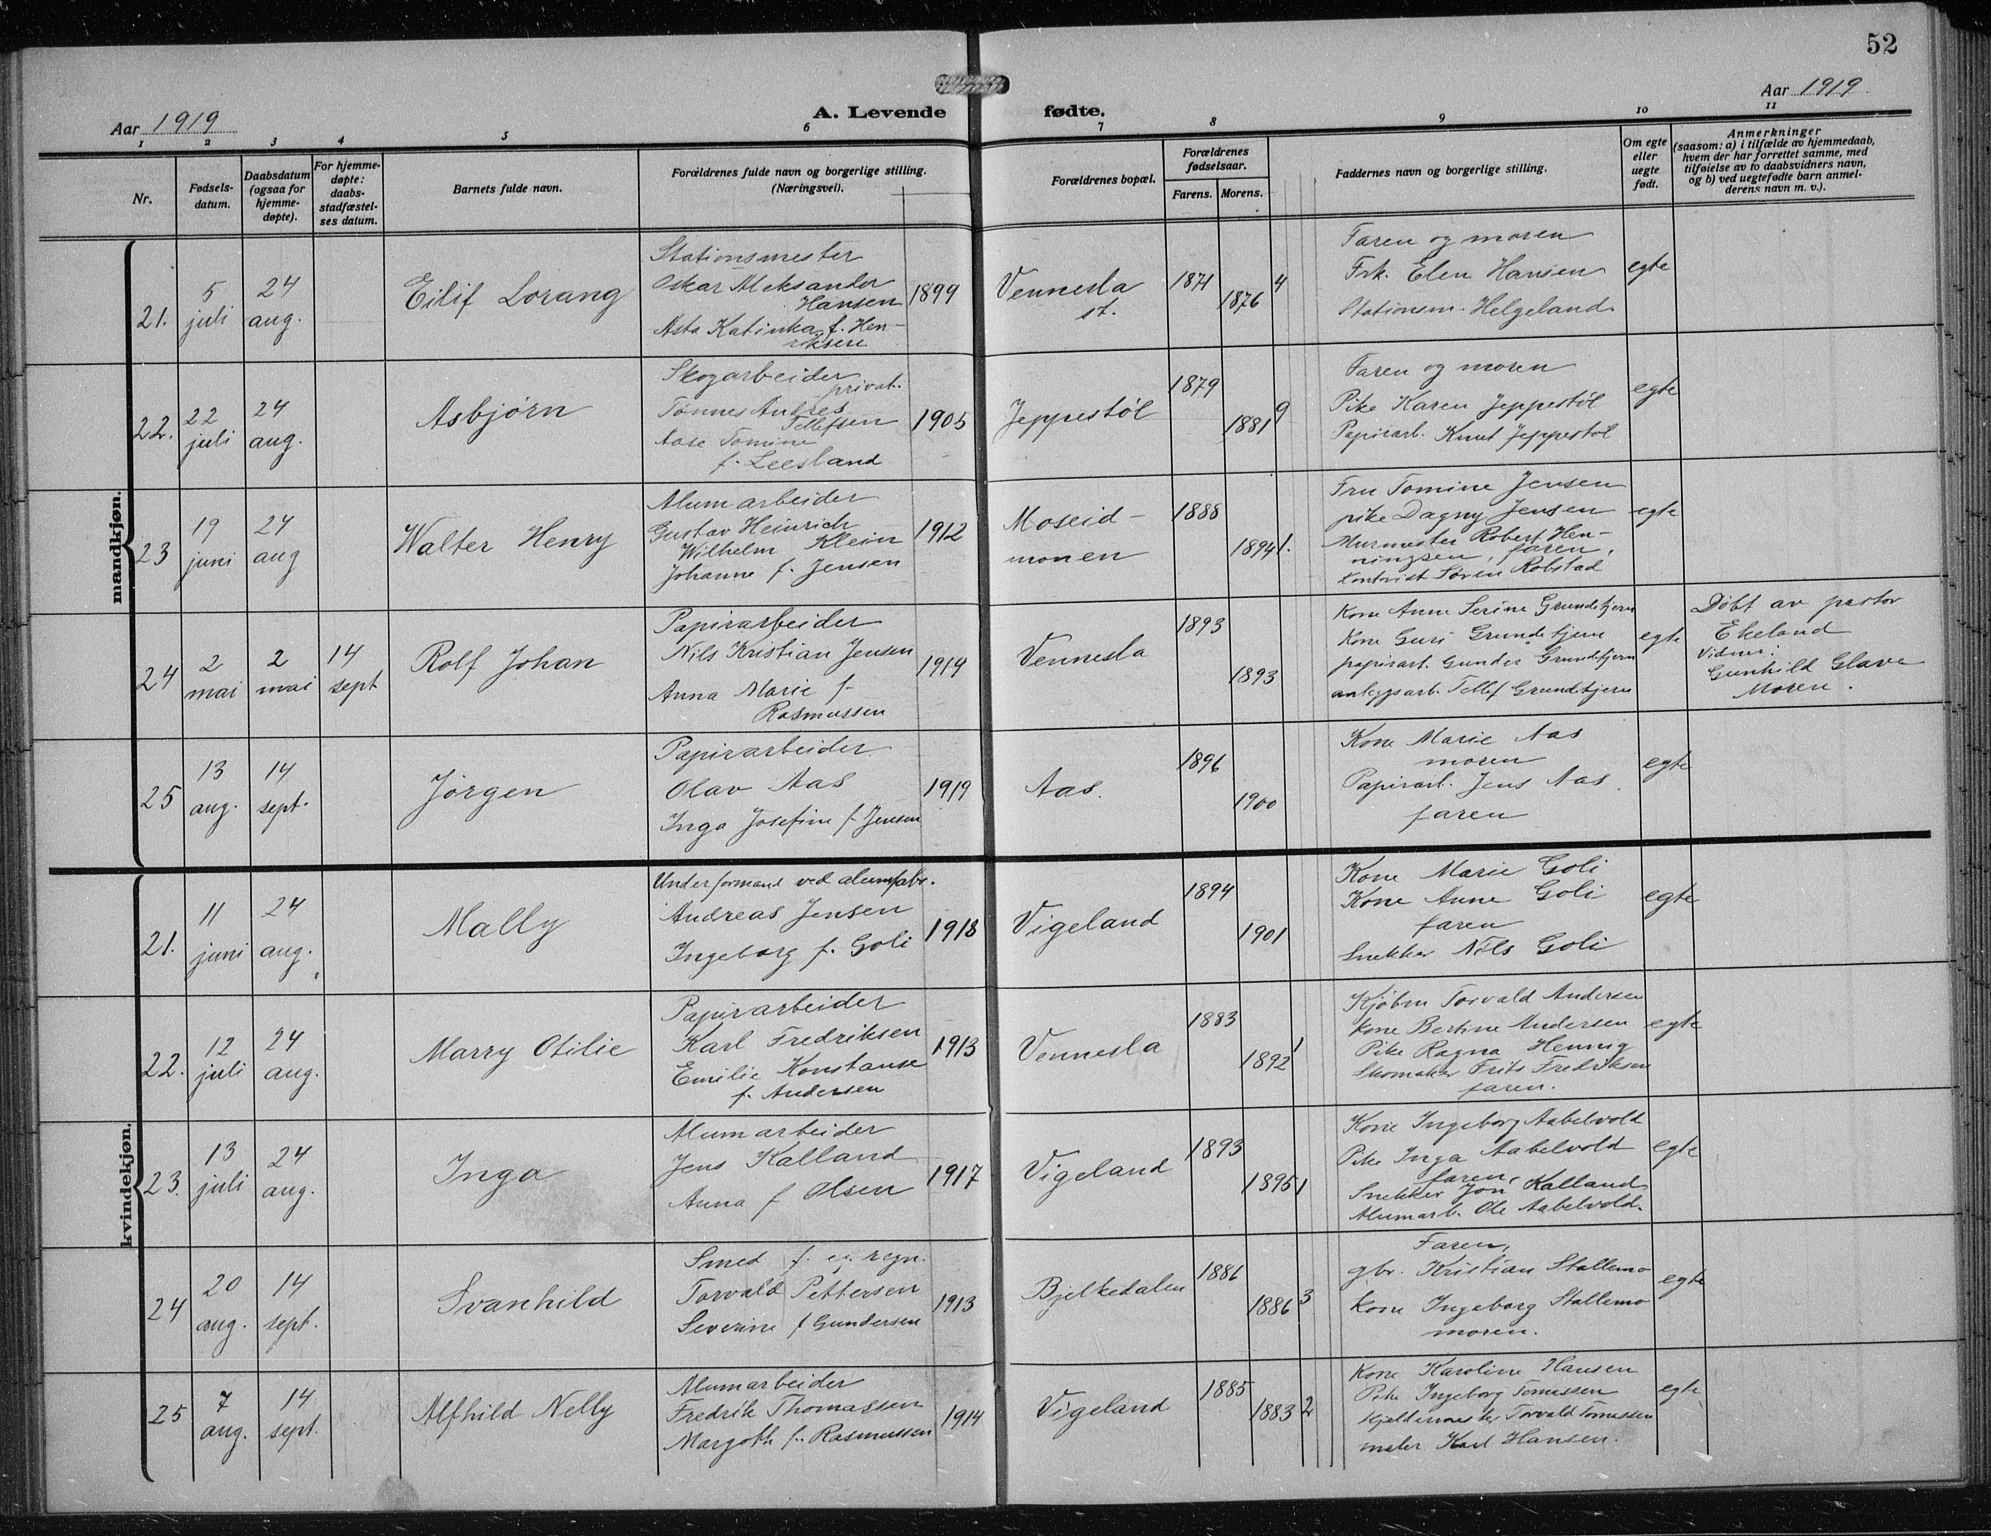 52
Aar 1919
A. Levende fødte.
Aar 1919
1 2 3 4 5 6 7 8 9 10 11
Nr.
Fødsels-
datum.
Daabsdatum
(ogsaa for
hjemme-
døpte).
For hjemme-
døpte:
daabs-
stadfæstel-
ses datum.
Barnets fulde navn.
Forældrenes fulde navn og borgerlige stilling.
(Næringsvei).
Forældrenes bopæl.
Forældrenes
fødselsaar.
Farens. Morens.
Faddernes navn og borgerlig stilling.
Om egte
eller
uegte
født.
Anmerkninger
(saasom: a) i tilfælde av hjemmedaab,
hvem der har forrettet samme, med
tilføielse av to daabsvidners navn,
og b) ved uegtefødte barn anmel-
derens navn m. v.).
mandkjøn.
21.
5
juli
24
aug.
Eilif Lorang
Stationsmester
Oskar Aleksander
Hansen
Asta Katinka f. Hen-
riksen
1899
Vennesla
st.
1871
1876
4
Faren og moren
Frk. Elen Hansen
Stationsm. Helgeland
egte
22.
22
juli
24
aug.
Asbjørn
Skogarbeider
privat.
Tønnes Andres
Tellefsen
Aase Tomine
f. Leesland
1905
Jeppestøl
1879
1881
9
Faren og moren
Pike Karen Jeppestøl
Papirarb. Knut Jeppestøl
egte
23
19
juni
24
aug
Walter Henry
Alumarbeider
Gustav Heinrich
Wilhelm Klein
Johanne f. Jensen
1912
Moseid-
monen
1888
1894
1.
Fru Tomine Jensen
pike Dagny Jensen
Murmester Robert Hen-
ningsen, faren,
Kontorist Søren Robstad
egte
24
2
mai
2
mai
14
sept
Rolf Johan
Papirarbeider
Nils Kristian Jensen
Anna Marie f.
Rasmussen
1914
Vennesla
1893
1893
Kone Anne Serine Grundetjern
Kone Guri Grundetjern
papirarb. Gunder Grundetjern
anleggsarb. Tellef Grundetjern
egte
Døbt av pastor
Ekeland
Vidner:
Gunhild Glave
Moren.
25
13
aug.
14
sept.
Jørgen
Papirarbeider
Olav Aas
Inga Josefine f. Jensen
1919
Aas.
1896
1900
Kone Marie Aas
moren
Papirarb. Jens Aas
faren
egte
kvindekjøn.
21.
11
juni
24
aug.
Mally
Underformand ved alumfabr.
Andreas Jensen
Ingeborg f. Goli
1918
Vigeland
1894
1901
Kone Marie Goli
Kone Anne Goli
faren
Snekker Nils Goli
egte
22.
12
juli
24
aug.
Marry Otilie
Papirarbeider
Karl Fredriksen
Emilie Konstanse
f. Andersen
1913
Vennesla
1883
1892
1
Kjøbm Torvald Andersen
Kone Bertine Andersen
Pike Ragna Hennig
Skomaker Frits Fredriksen
faren.
egte
23.
13
juli
24
aug.
Inga
Alumarbeider
Jens Kalland
Anna f Olsen
1917
Vigeland
1893
1895
1
Kone Ingeborg Aabelvold
Pike Inga Aabelvold
faren,
Snekker Jon Kalland
Alumarb. Ole Aabelvold.
egte
24
20
aug.
14
sept.
Svanhild
Smed f. eg. regn.
Torvald Pettersen
Severine f Gundersen
1913
Bjelkedalen
1886
1886
3
Faren,
gbr. Kristian Stallemo
Kone Ingeborg Stallemo
moren.
egte
25
7
aug.
14
sept.
Alfhild Nelly
Alumarbeider
Fredrik Thomassen
Margoth f. Rasmussen
1914
Vigeland
1885
1883
2
Kone Karoline Hansen
Pike Ingeborg Tomassen
Kjeldermester Torvald Tomassen
maler Karl Hansen.
egte